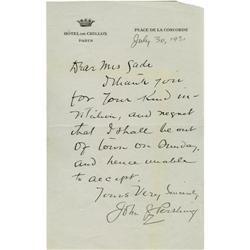 HÔTEL DE CRILLON
PARIS
PLACE DE LA CONCORDE
July 30, 192
Dear Mrs Gade
I thank you
for your kind in-
vitation, and regret
that I shall be out
of town on Sunday,
and hence unable
to accept.
Yours Very Sincerely
John J Pershing